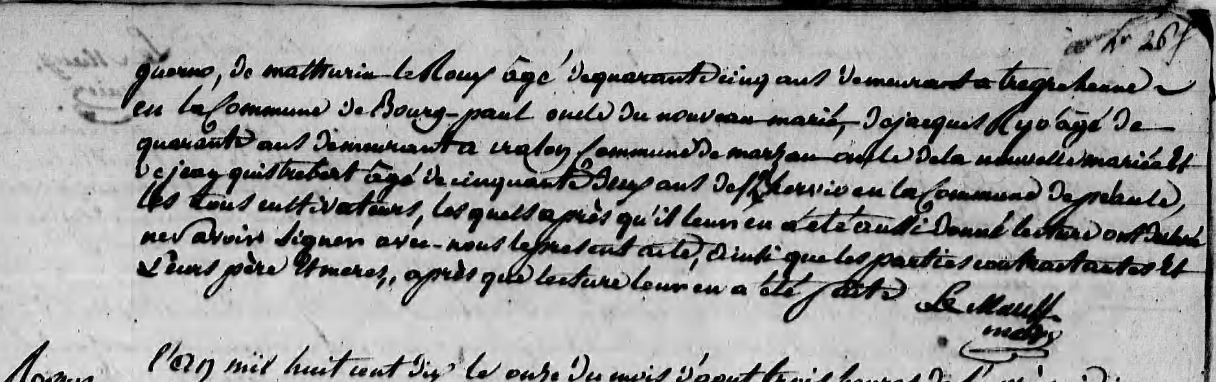 267
querno, de mathurin le Roux âgé de quarante cinq ans demeurant a tregrehenne
en la Commune de Bourg-paul oncle du nouveau marié, de jacques Ryo âgé de
quarante ans demeurant a Commune de marzan oncle de la nouvelle mariée Et
de jean quistrebert âgé de cinquante deux ans de en la Commune de péaule,
les tous cultivateurs, les quels après qu'il leur en a été aussi donné lecture ont déclaré
ne savoir signer avec nous le present acte, ainsi que les parties contractantes Et
Leurs père Et meres,, après que lecture leur en a été faite Le Mauff
maire
l'an mil huit cent dix le onze du mois d'aout trois heures de